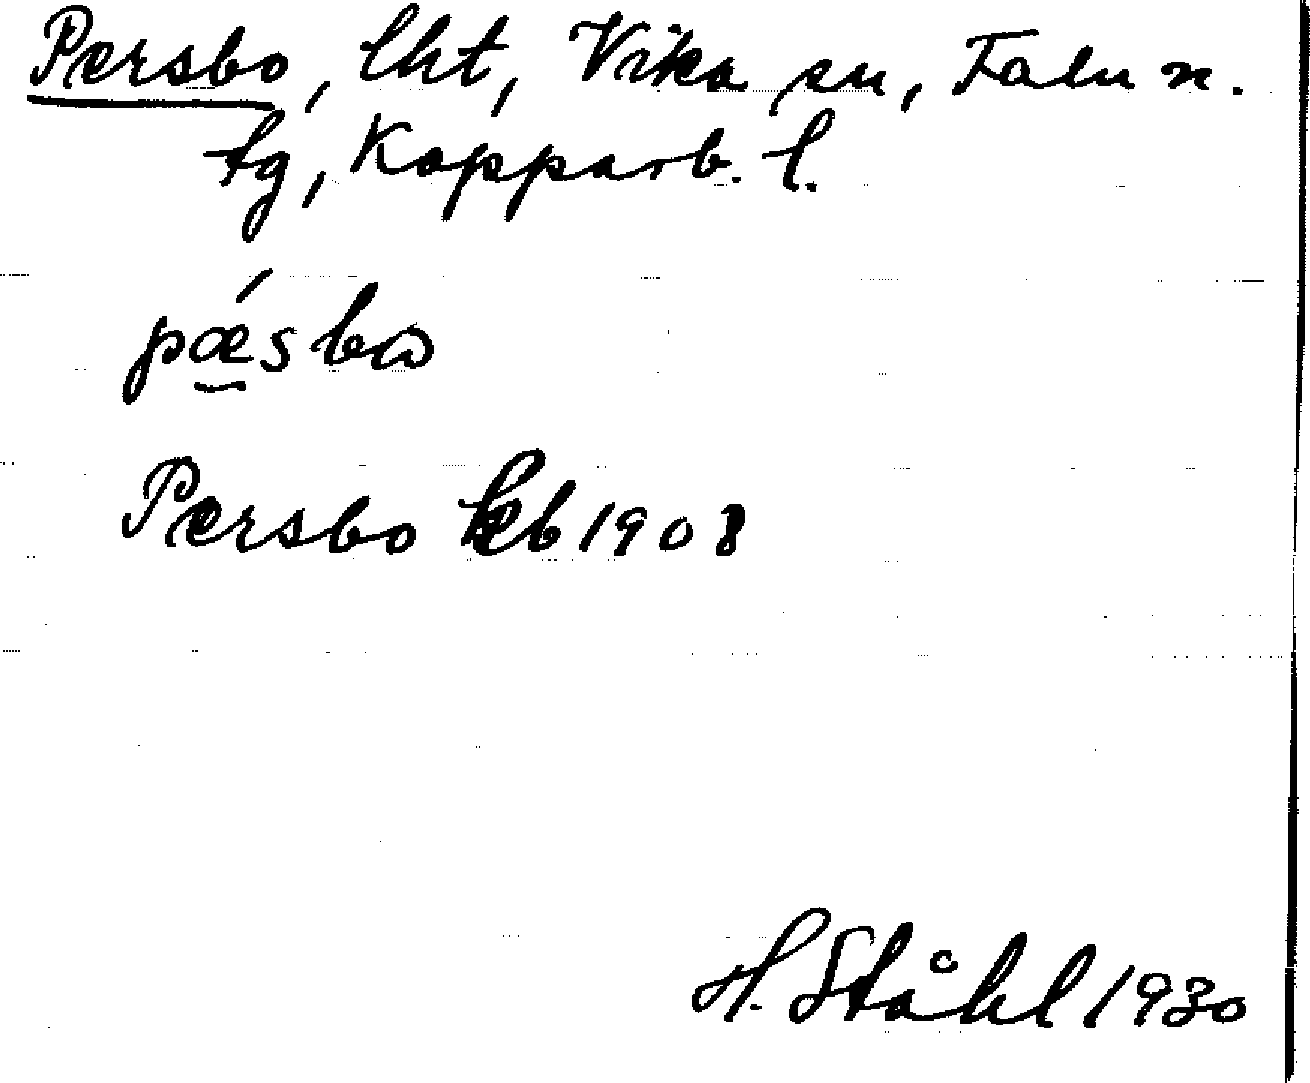 Persbo, lht, Vika sn, Falu n.
tg, Kopparb. l.
pǽsbω
Persbo Jeb 1908
H. Ståhl 1930